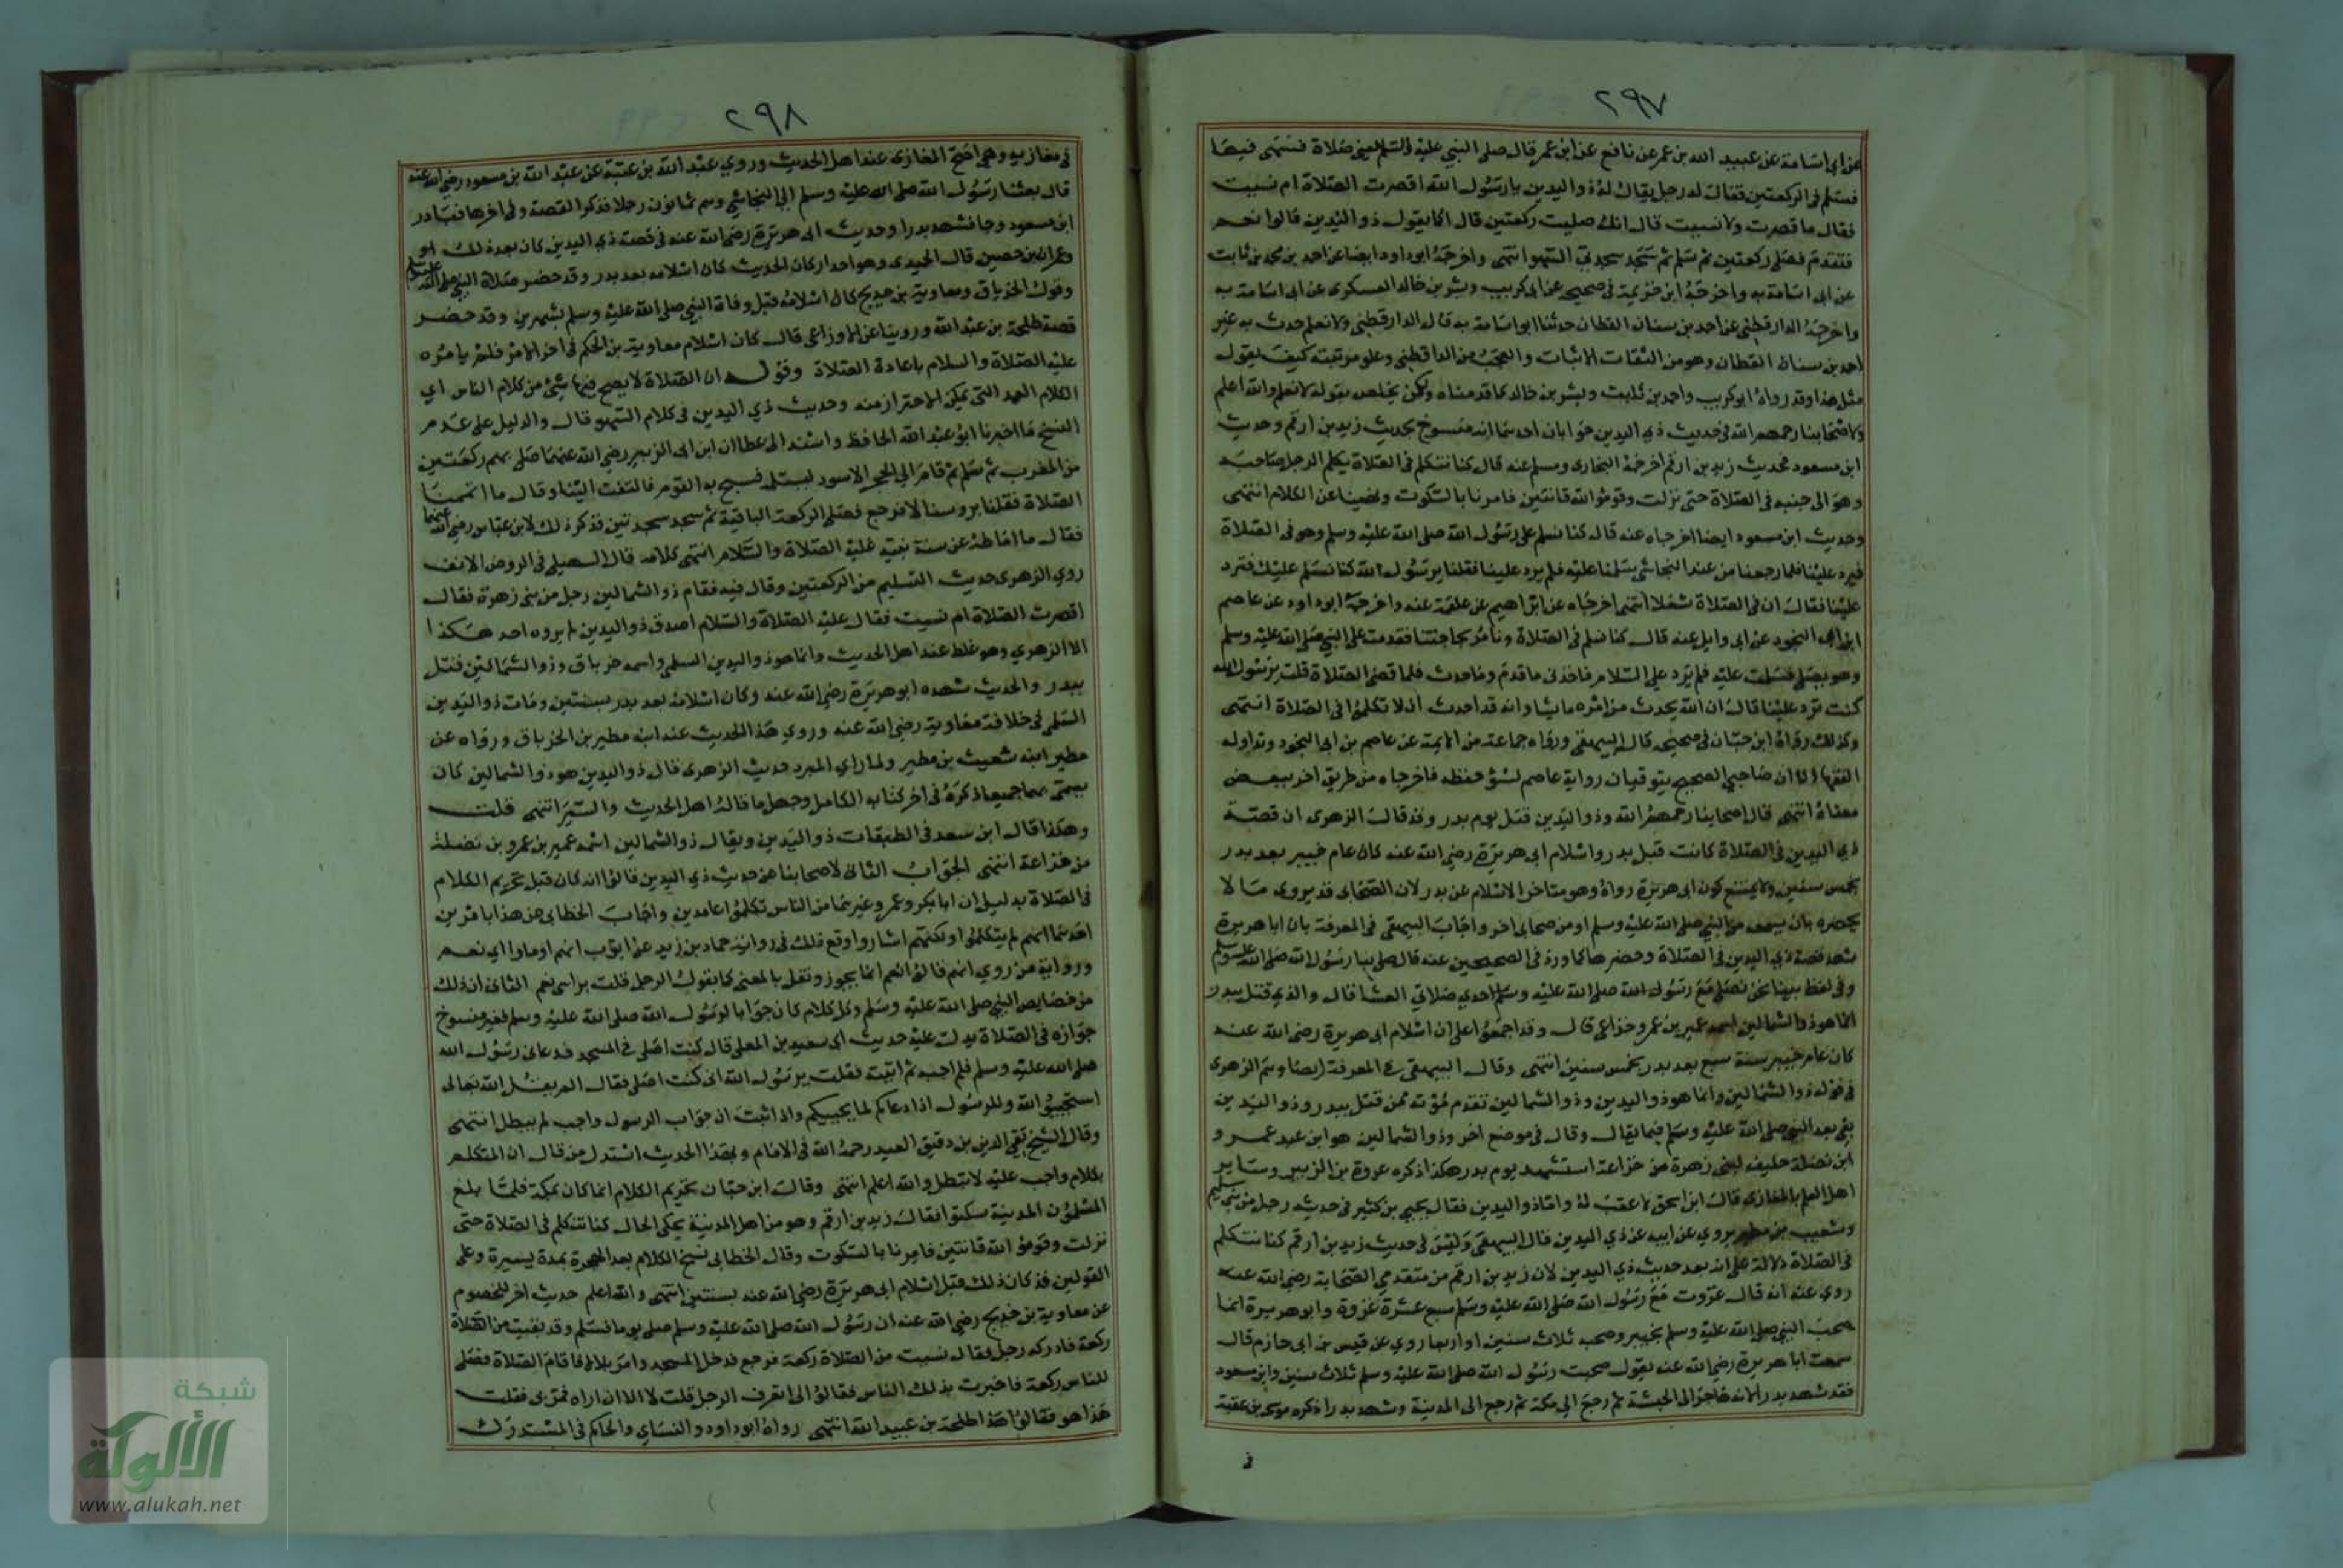 ٢٩٧
عن ابي اسامة عن عبيد الله بن عمر عن نافع عن ابن عمر قال صلى النبي عليه السلم صلاة فسهى فيها
فسلم في الركعتين فقال له رجل يقال له ذو اليدين يا رسول الله اقصرت الصلاة ام نسيت
فقال ما قصرت ولا نسيت قال انك صليت ركعتين قال اكما يقول ذو اليدين قالوا نعم
فتقدم فصلى ركعتين ثم سلم ثم سجد سجدتي السهو انتهى واخرجه ابو داود ايضا عن احمد بن محمد بن ثابت
عن ابي اسامة به واخرجه ابن خزيمة في صحيحه عن ابي كريب وبشر بن خالد العسكري عن ابي اسامة به
واخرجه الدارقطني عن احمد بن سنان القطان حدثنا ابو اسامة به قال الدارقطني ولا نعلم حدث به غير
احمد بن سنان القطان وهو من الثقات الاثبات والعجب من الداقطني وعلو مرتبته كيف يقول
مثل هذا وقد رواه ابو كريب واحمد بن ثابت وبشر بن خالد كما قدمناه ولكن يخلص بقوله لا نعلم والله اعلم
ولاصحابنا رحمهم الله في حديث ذي اليدين جوابان احدهما انه منسوخ بحديث زيد بن ارقم وحديث
ابن مسعود فحديث زيد بن ارقم اخرجه البخاري ومسلم عنه قال كنا نتكلم في الصلاة يكلم الرجل صاحبه
وهو الى جنبه في الصلاة حتى نزلت وقوموا لله قانتين فامرنا بالسكوت ونهينا عن الكلام انتهى
وحديث ابن مسعود ايضا اخرجاه عنه قال كنا نسلم على رسول الله صلى الله عليه وسلم وهو في الصلاة
فيرد علينا فلما رجعنا من عند النجاشي سلمنا عليه فلم يرد علينا فقلنا يرسول الله كنا نسلم عليك فترد
علينا فقال ان في الصلاة شغلا انتهى اخرجاه عن ابراهيم عن علقمة عنه واخرجه ابو داود عن عاصم
ابن ابي النجود عن ابي وايل عنه قال كنا نسلم في الصلاة ونامر بحاجتنا فقدمت على النبي صلى الله عليه وسلم
وهو يصلي فسلمت عليه فلم يرد علي السلام فاخذني ما قدم وما حدث فلما قضى الصلاة قلت يرسول الله
كنت ترد علينا قال ان الله يحدث من امره ما يشا وانه قد احدث ان لا تكلموا في الصلاة انتهى
وكذلك رواه ابن حبان في صحيحه قال البيهقي ورواه جماعة من الايمة عن عاصم بن ابي النجود وتداوله
الفقها الا ان صاحبي الصحيح يتوقيان رواية عاصم لسؤ حفظه فاخرجاه من طريق اخر ببعض
معناه انتهى قال اصحابنا رحمهم الله وذو اليدين قتل يوم بدر وقد قال الزهري ان قصة
ذي اليدين في الصلاة كانت قبل بدر واسلام ابي هريرة رضي الله عنه كان عام خيبر بعد بدر
بخمس سنين ولا يمتنع كون ابي هريرة رواه وهو متاخر الاسلام عن بدر لان الصحابي قد يروي ما لا
يحضره بان يسمعه من النبي صلى الله عليه وسلم او من صحابي اخر واجاب البيهقي في المعرفة بان ابا هريرة
شهد قصة ذي اليدين في الصلاة وحضرها كما ورد في الصحيحين عنه قال صلى بنا رسول الله صلى الله عليه وسلم
وفي لفظ بينا نحن نصلي مع رسول الله صلى الله عليه وسلم احدي صلاتي العشا قال والذي قتل ببدر
انما هو ذو الشمالين اسمه عمير بن عمرو خزاعي قال وقد اجمعوا على ان اسلام ابي هريرة رضي الله عنه
كان عام خيبر سنة سبع بعد بدر بخمس سنين انتهى وقال البيهقي في المعرفة ايضا وهم الزهري
في قوله ذو الشمالين وانما هو ذو اليدين وذو الشمالين تقدم موته فمن قتل ببدر وذو اليدين
بقي بعد النبي صلى الله عليه وسلم فيما يقال وقال في موضع اخر وذو الشمالين هو ابن عبد عمرو
ابن نضلة حليف لبني زهرة من خزاعة استشهد يوم بدر هكذا ذكره عروة بن الزبير وساير
اهل العلم بالمغازي قال ابن اسحق لا عقب له واما ذو اليدين فقال يحيى بن كثير في حديثه رجل من بني سليم
وشعيب بن مطير يروي عن ابيه عن ذي اليدين قال البيهقي وليس في حديث زيد بن ارقم كنا نتكلم
في الصلاة دلالة على انه بعد حديث ذي اليدين لان زيد بن ارقم من متقدمي الصحابة رضي الله عنه
روي عنه انه قال غزوت مع رسول الله صلى الله عليه وسلم سبع عشرة غزوة وابو هريرة انما
صحب النبي صلى الله عليه وسلم بخيبر وصحبه ثلاث سنين او اربعا روي عن قيس بن ابي حازم قال
سمعت ابا هريرة رضي الله عنه يقول صحبت رسول الله صلى الله عليه وسلم ثلاث سنين وابن مسعود
فقد شهد بدرا لانه هاجر الى الحبشة ثم رجع الى مكة ثم رجع الى المدينة وشهد بدرا ذكره موسى بن عقبة
في
٢٩٨
في مغازيه وهي اصح المغازي عند اهل الحديث وروي عبد الله بن عتبة عن عبد الله بن مسعود رضي الله عنه
قال بعثنا رسول الله صلى الله عليه وسلم الى النجاشي وهم ثمانون رجلا فذكر القصة وفي اخرها فبادر
ابن مسعود وجا فشهد بدرا وحديث ابي هريرة رضي الله عنه في قصة ذي اليدين كان بعد ذلك
وعمران بن حصين قال الحميدي وهو احد اركان الحديث كان اسلامه بعد بدر وقد حضر صلاة النبي صلى الله عليه وسلم
وقول الخرباق ومعاوية بن حديج كان اسلامه قبل وفاة النبي صلى الله عليه وسلم بشهرين وقد حضر
قصة طلحة بن عبد الله وروينا عن الاوزاعي قال كان اسلام معاوية بن الحكم في اخر الامر فلم يامره
عليه الصلاة والسلام باعادة الصلاة وقوله ان الصلاة لا يصح فيها شئ من كلام الناس اي
الكلام العمد التي يمكن الاحتراز منه وحديث ذي اليدين في كلام السهو قال والدليل على عدم
النسخ ما اخبرنا ابو عبد الله الحافظ واسند الى عطا ان ابن ابي الزبير رضي الله عنهما صلى بهم ركعتين
من المغرب ثم سلم ثم قام الي الحجر الاسود ليستلمه فسبح به القوم فالتفت الينا وقال ما اتممنا
الصلاة فقلنا بروسنا لا فرجع فصلى الركعة الباقية ثم سجد سجدتين فذكر ذلك لابن عباس رضي الله عنهما
فقال ما اماط عن سنة نبيه عليه الصلاة والسلام انتهى كلامه قال السهيلي في الروض الانف
روي الزهري حديث التسليم من الركعتين وقال فيه فقام ذو الشمالين رجل من بني زهرة فقال
اقصرت الصلاة ام نسيت فقال عليه الصلاة والسلام اصدق ذو اليدين لم يروه احد هكذا
الا الزهري وهو غلط عند اهل الحديث وانما هو ذو اليدين السلمي واسمه خرباق وذو الشمالين قتل
ببدر والحديث شهده ابو هريرة رضي الله عنه وكان اسلامه بعد بدر بسنتين ومات ذو اليدين
السلمي في خلافة معاوية رضي الله عنه وروي هذا الحديث عنه ابنه مطير بن الخرباق ورواه عن
مطير ابنه شعيث بن مطير ولما راى المبرد حديث الزهري قال ذو اليدين هو ذو الشمالين كان
يسمى بهما جميعا ذكره في اخر كتابه الكامل وجهل ما قاله اهل الحديث والسير انتهى قلت
وهكذا قال ابن سعد في الطبقات ذو اليدين ويقال ذو الشمالين اسمه عمير بن عمرو بن نضلة
من خزاعة انتهى الجواب الثاني لاصحابنا عن حديث ذي اليدين قالوا انه كان قبل تحريم الكلام
في الصلاة بدليل ان ابا بكر وعمر وغيرهما من الناس تكلموا عامدين واجاب الخطابي عن هذا بامرين
احدهما انهم لم يتكلموا ولكنهم اشاروا وقع ذلك في رواية حماد بن زيد عن ايوب انهم اوماوا اي نعم
ورواية من روي انهم قالوا نعم انما يجوز ونقل بالمعنى كما يقول الرجل قلت براسي نعم الثاني ان ذلك
من خصايص النبي صلى الله عليه وسلم وكل كلام كان جوابا لرسول الله صلى الله عليه وسلم فغير منسوخ
جوازه في الصلاة يدلت عليه حديث ابي سعيد بن المعلى قال كنت اصلي في المسجد فدعاني رسول الله
صلى الله عليه وسلم فلم اجبه ثم اتيته فقلت يرسول الله اني كنت اصلي فقال الم يقل الله تعالى
استجيبوا لله وللرسول اذا دعاكم لما يحييكم واذا ثبت ان جواب الرسول واجب لم يبطل انتهى
وقال الشيخ تقي الدين بن دقيق العيد رحمه الله في الامام وبهذا الحديث استدل من قال ان المتكلم
بكلام واجب عليه لا تبطل والله اعلم انتهى وقال ابن حبان تحريم الكلام انما كان بمكة فلما بلغ
المسلمون المدينة سكتوا فقال زيد بن ارقم وهو من اهل المدينة يحكي الحال كنا نتكلم في الصلاة حتى
نزلت وقوموا لله قانتين فامرنا بالسكوت وقال الخطابي نسخ الكلام بعد الهجرة بمدة يسيرة وعلى
القولين فقد كان ذلك قبل اسلام ابي هريرة رضي الله عنه بسنتين انتهى والله اعلم حديث اخر للخصوم
عن معاوية بن خديج رضي الله عنه ان رسول الله صلى الله عليه وسلم صلى يوما فسلم وقد بقيت من الصلاة
ركعة فادركه رجل فقال نسيت من الصلاة ركعة فرجع فدخل المسجد وامر بلالا فاقام الصلاة فصلى
للناس ركعة فاخبرت بذلك الناس فقالوا لي اتعرف الرجل قلت لا الا ان اراه فمر بي فقلت
هذا هو فقالوا هذا طلحة بن عبيد الله انتهى رواه ابو داود والنساي والحاكم في المستدرك
شبكة
الألوكة
www.alukah.net